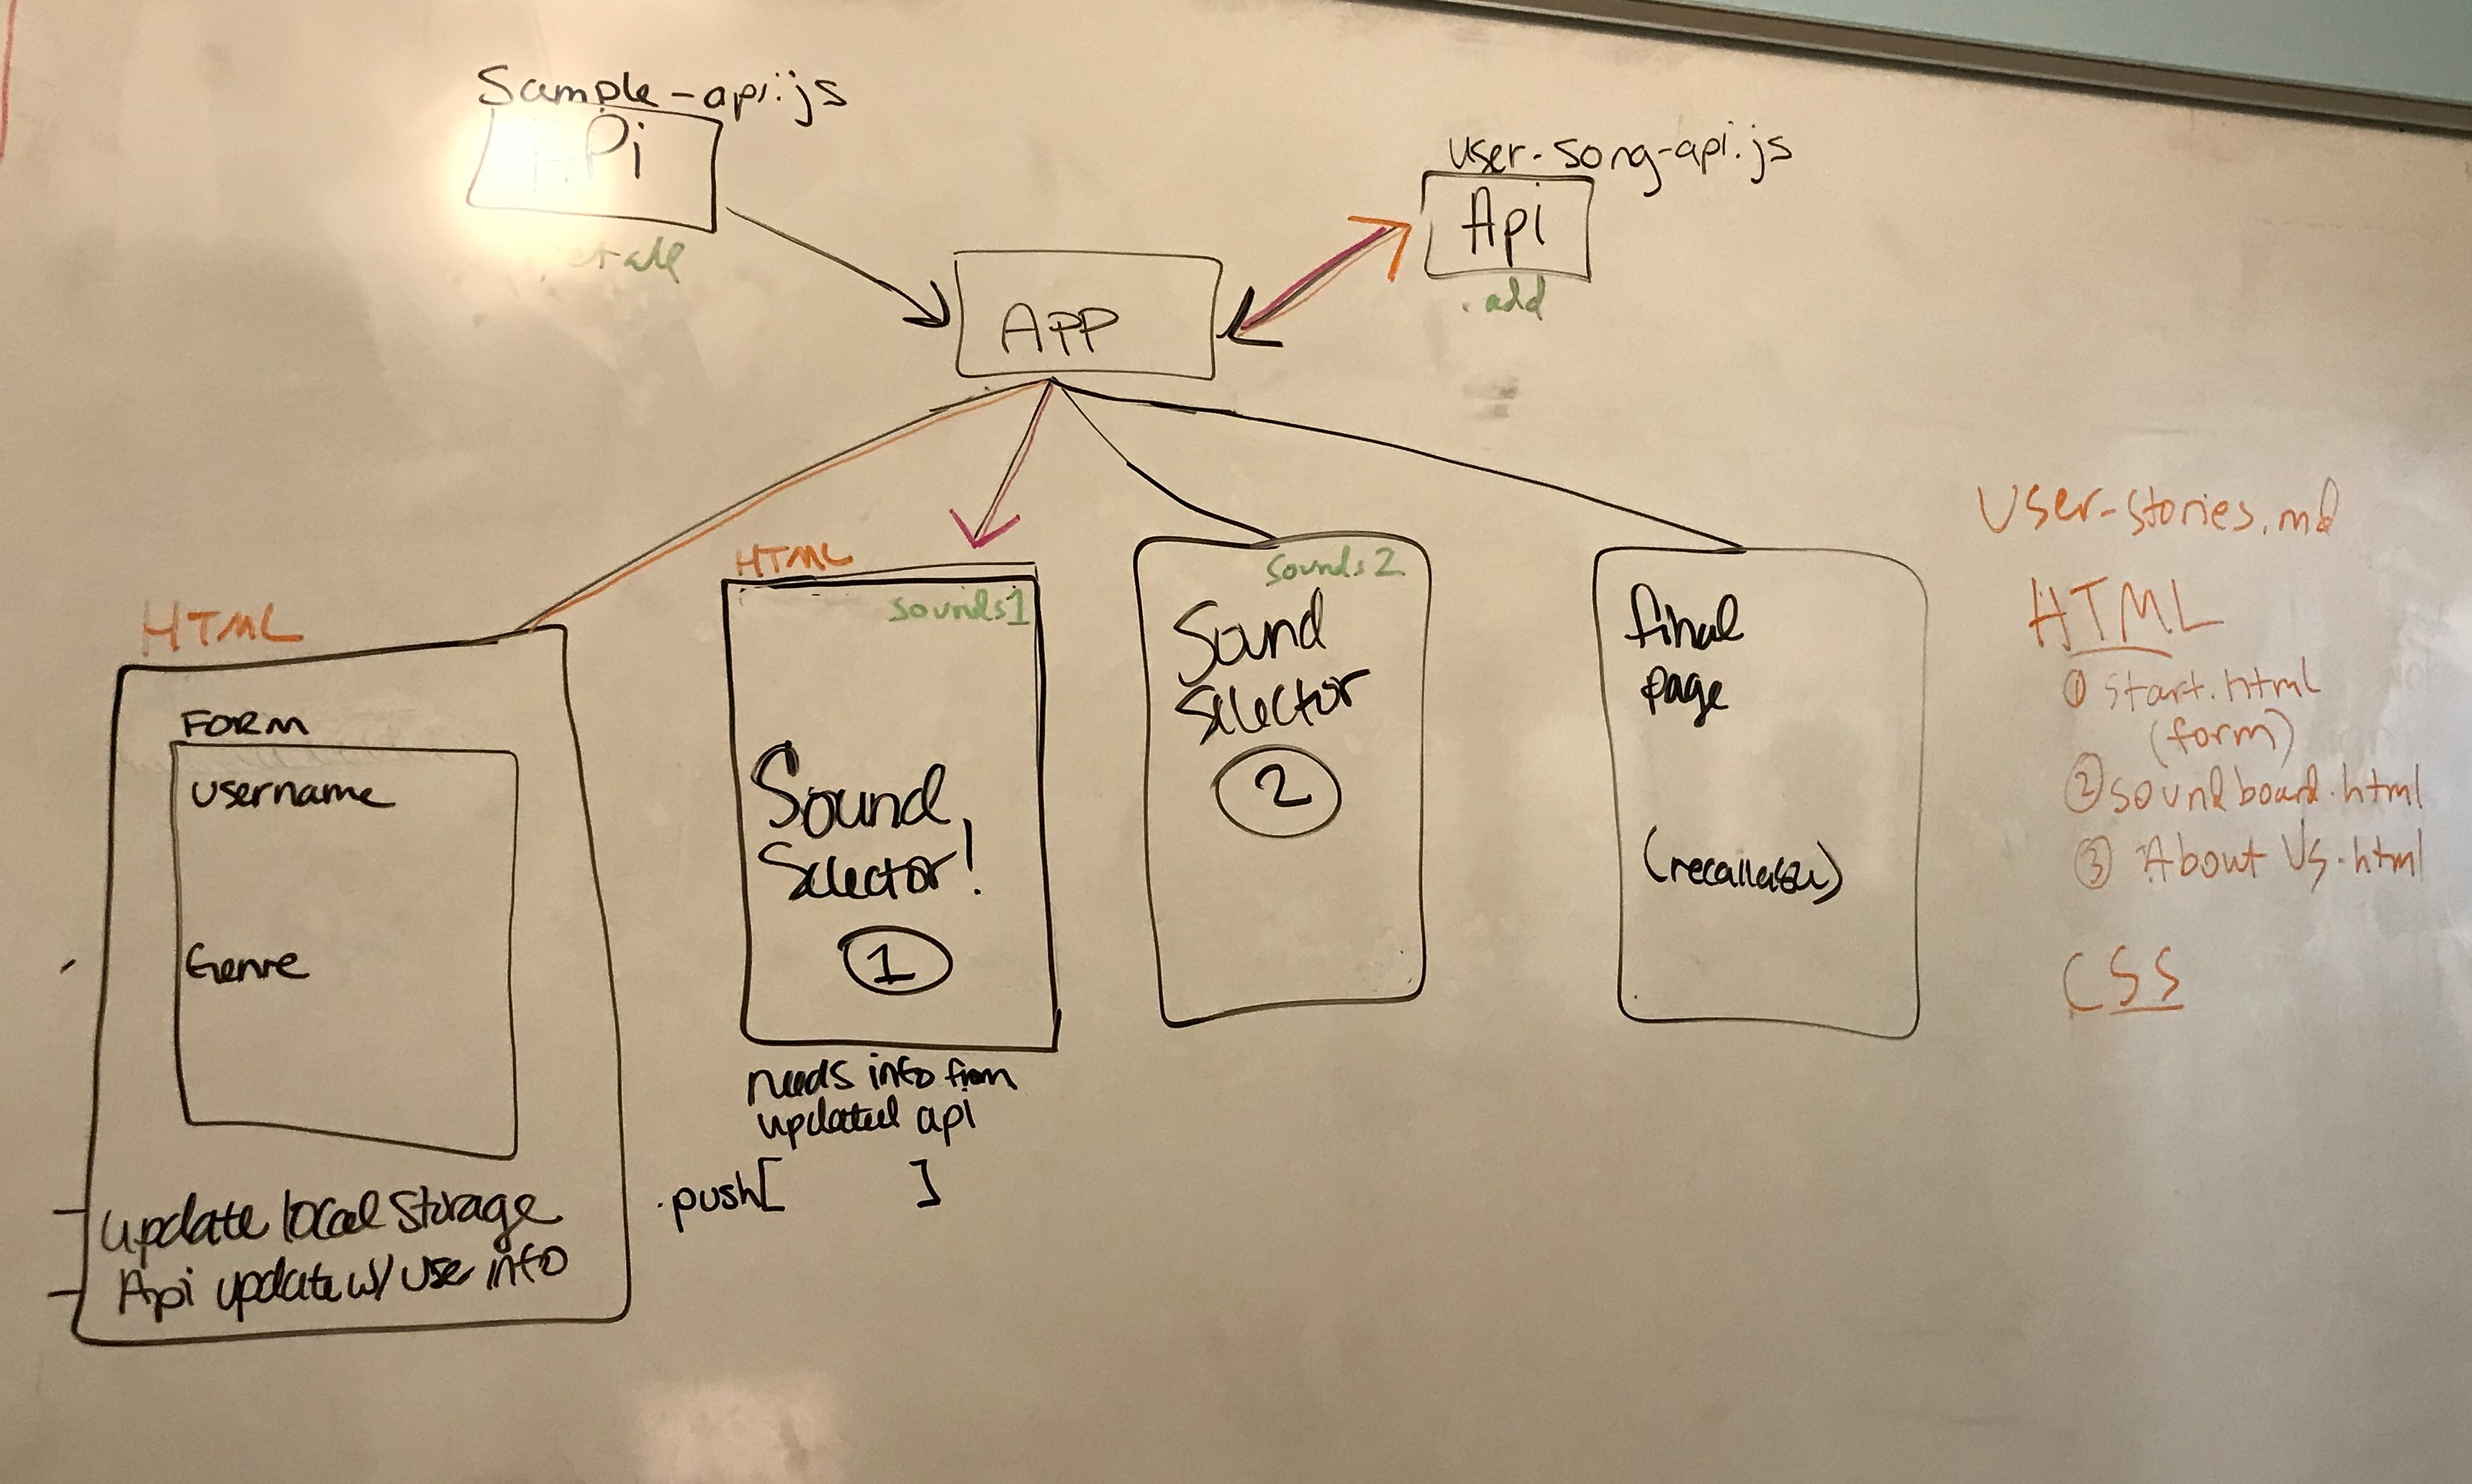 Sample-api.js
APi
get all
user-song-api.js
Api
.add
APP
HTML
FORM
username
Genre
update local storage
Api update w/ user info
HTML
sounds1
Sound
Selector!
1
needs info from
updated api
.push[ ]
sounds2
Sound
Selector
2
final
page
User-stories.md
HTML
① start.html
(form)
② soundboard.html
③ About Us.html
CSS